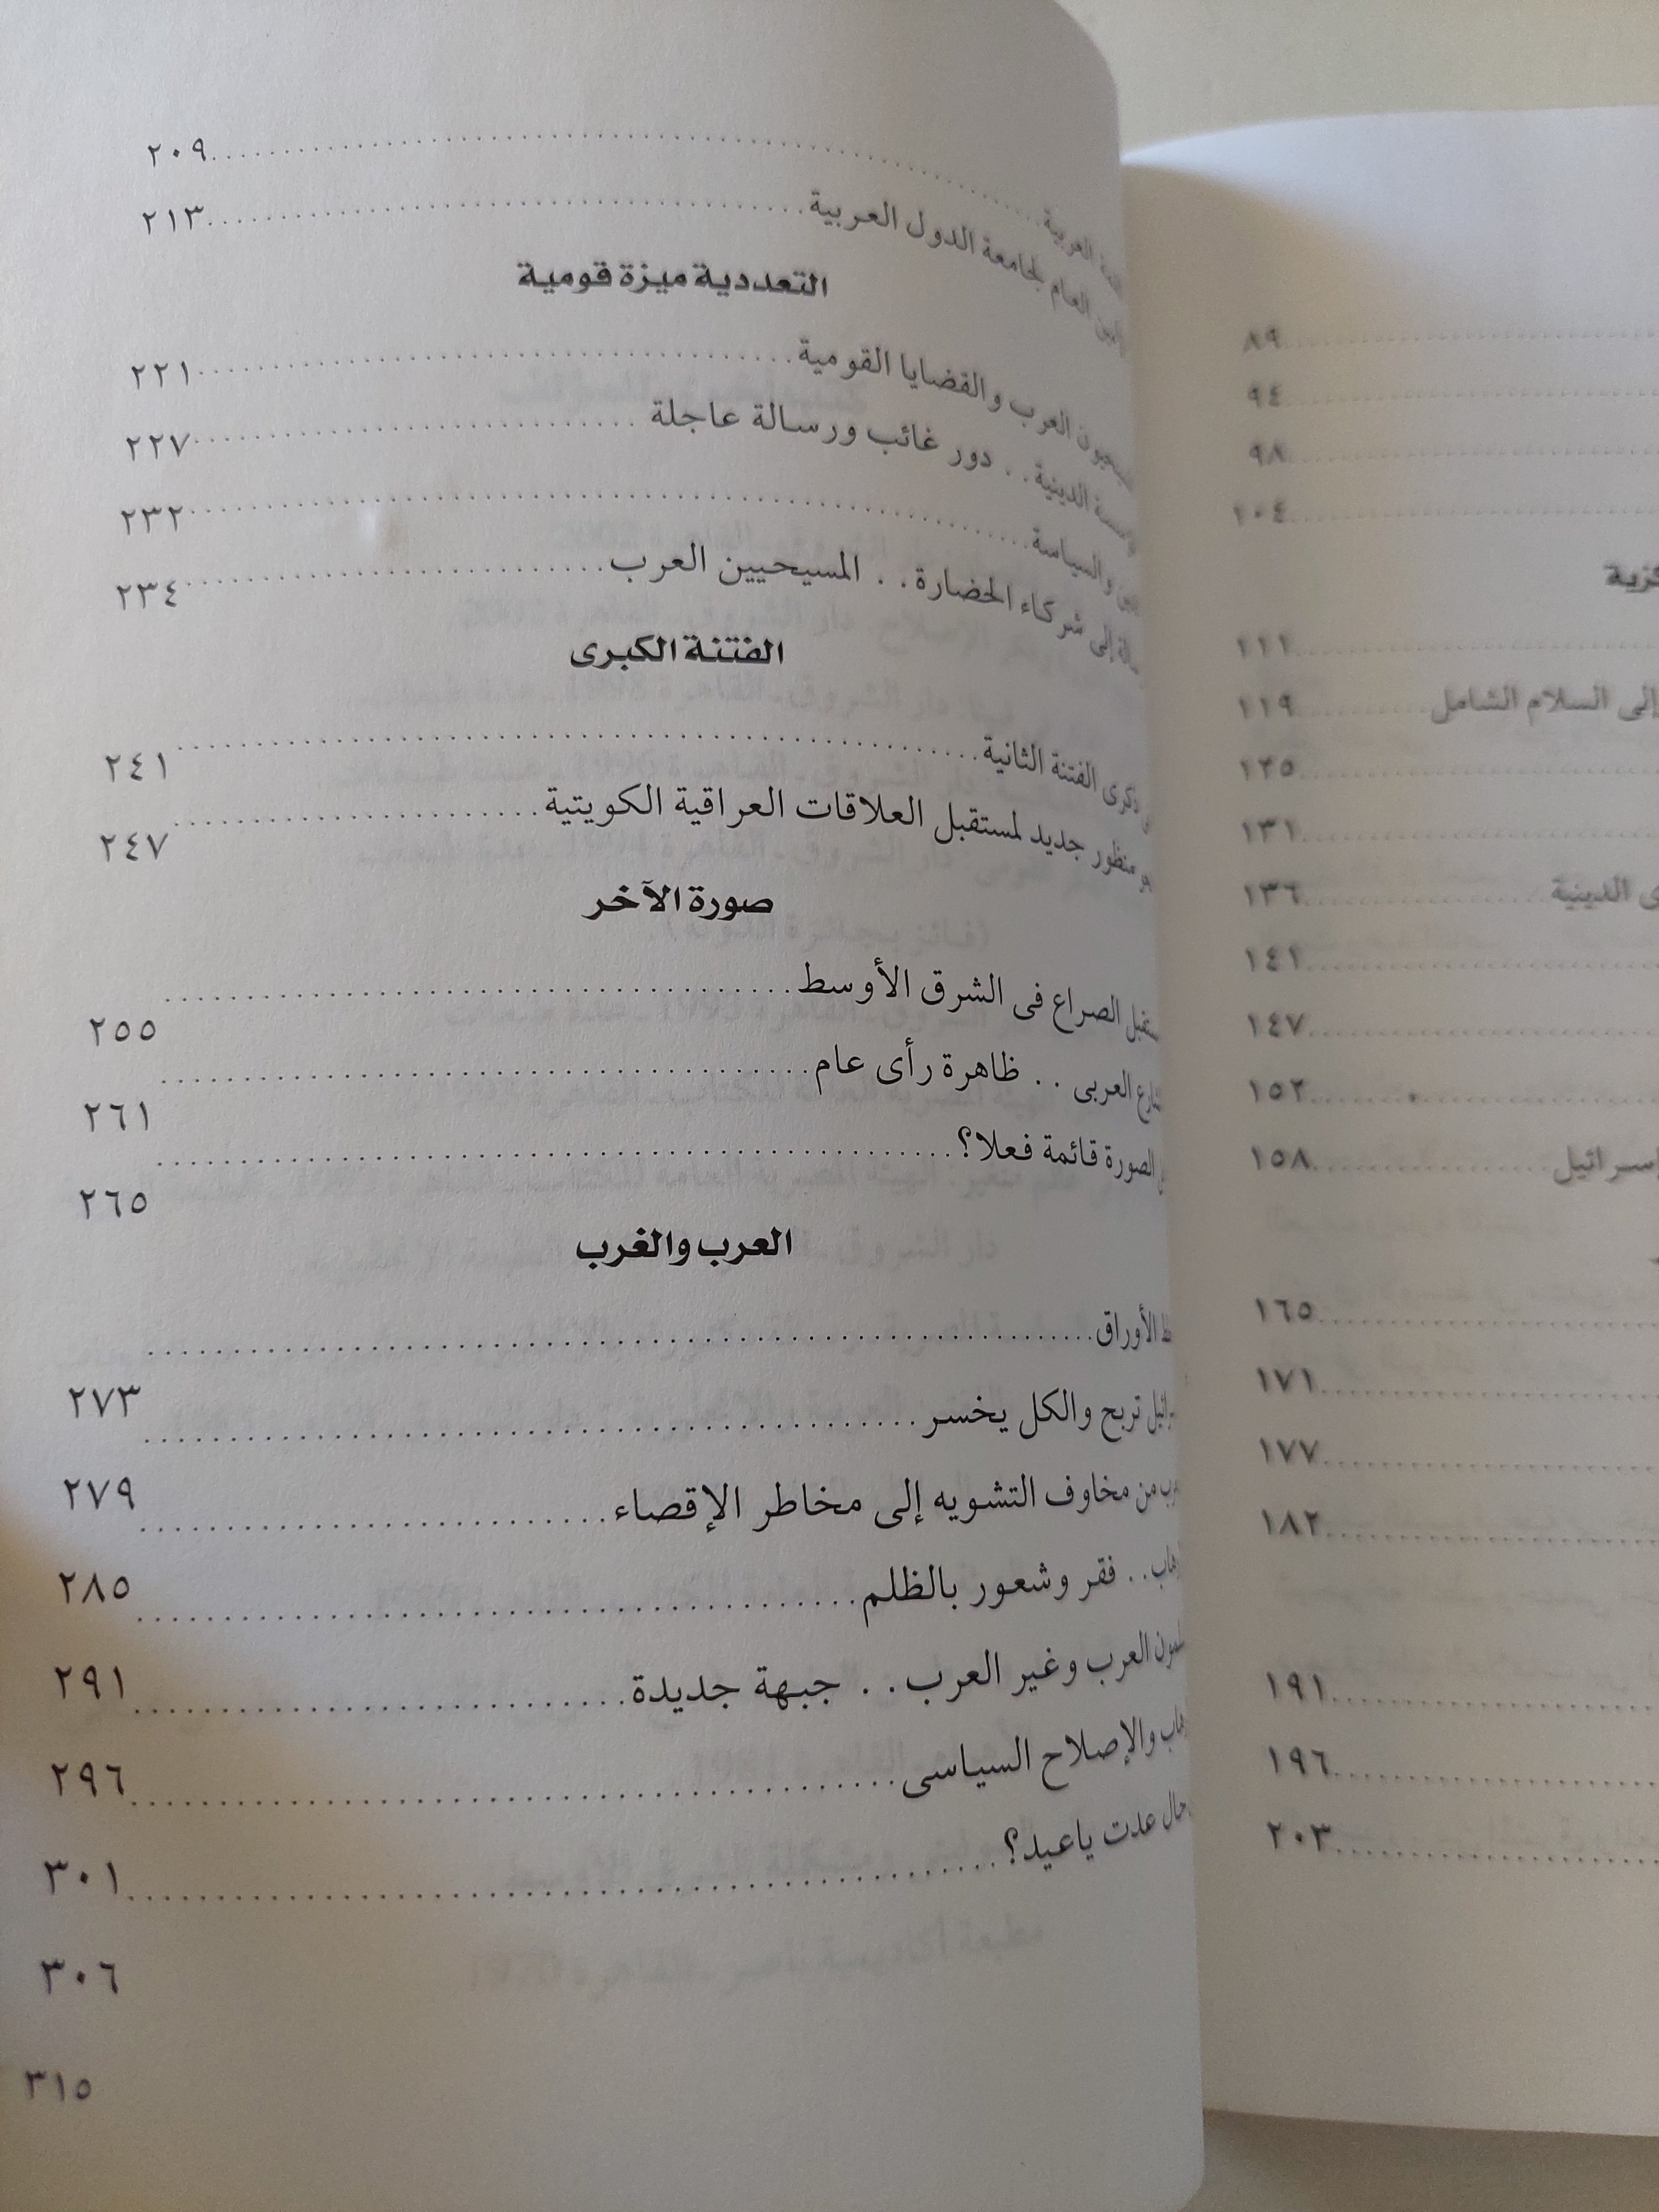 العربية ٢٠٩
العام لجامعة الدول العربية ٢١٣
التعددية ميزة قومية
العرب والقضايا القومية ٢٢١
الدينية . . دور غائب ورسالة عاجلة ٢٢٧
والسياسة ٢٣٢
إلى شركاء الحضارة . . المسيحيين العرب ٢٣٤
الفتنة الكبرى
ذكرى الفتنة الثانية ٢٤١
منظور جديد لمستقبل العلاقات العراقية الكويتية ٢٤٧
صورة الآخر
الصراع فى الشرق الأوسط ٢٥٥
العربى . . ظاهرة رأى عام ٢٦١
الصورة قائمة فعلا؟ ٢٦٥
العرب والغرب
الأوراق
٢٧٣
تربح والكل يخسر
٢٧٩
من مخاوف التشويه إلى مخاطر الإقصاء
٢٨٥
. . فقر وشعور بالظلم
٢٩١
العرب وغير العرب . . جبهة جديدة
٢٩٦
والإصلاح السياسى
٣٠١
حال عدت ياعيد؟
٣٠٦
٣١٥
٨٩
٩٤
٩٨
١٠٤
١١١
إلى السلام الشامل ١١٩
١٢٥
١٣١
الدينية ١٣٦
١٤١
١٤٧
١٥٢
إسرائيل ١٥٨
١٦٥
١٧١
١٧٧
١٨٢
١٩١
١٩٦
٢٠٣